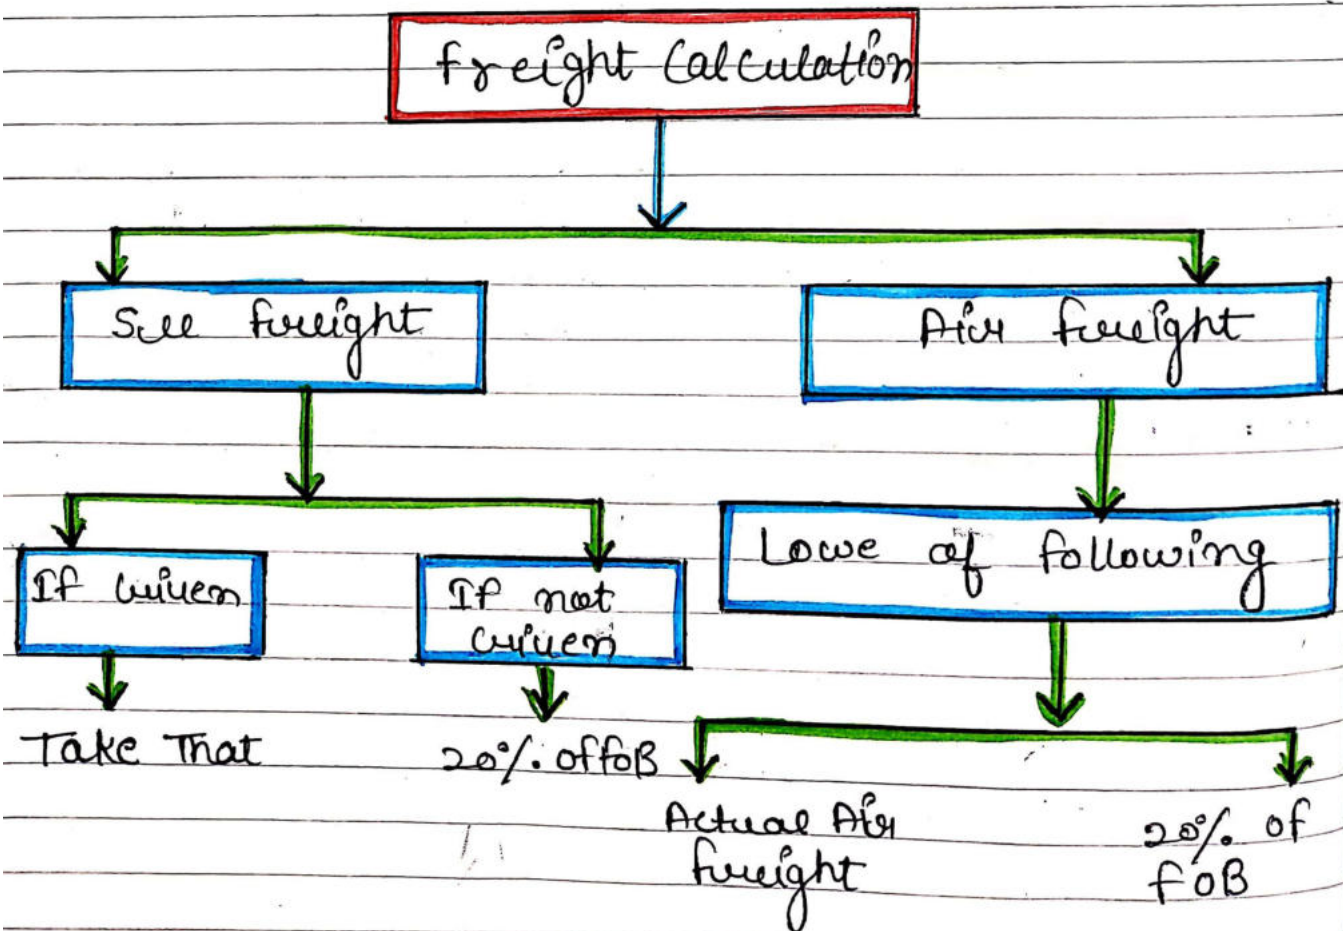 Freight Calculation
See freight
Air freight
If Given
If not
Given
Lowe of following
Take That
20% of FOB
Actual Air
freight
20% of
FOB